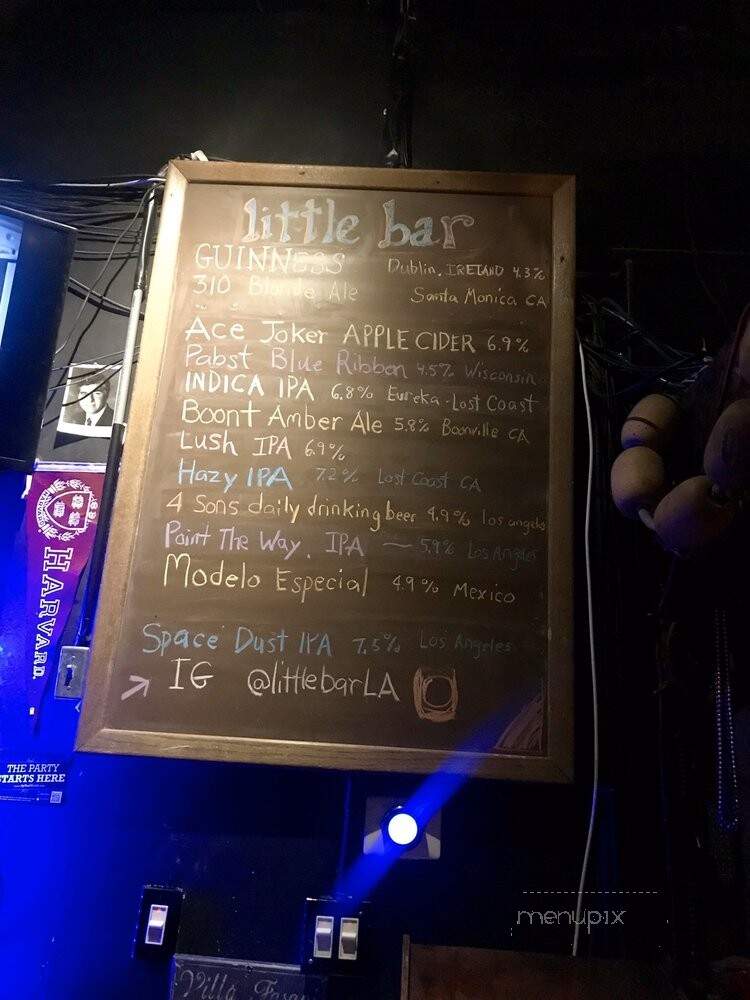 little bar
GUINNESS Dublin, IRELAND 4.3%
310 Blonde Ale Santa Monica CA
Ace Joker APPLE CIDER 6.9%
Pabst Blue Ribben 4.5% Wisconsin
INDICA IPA 6.8% Eureka-Lost Coast
Boont Amber Ale 5.8% Boonville CA
Lush IPA 6.9%
Hazy IPA 7.2% Lost Coast CA
4 Sons daily drinking beer 4.9% los angeles
Point The Way, IPA — 5.9% Los Angeles
Modelo Especial 4.9% Mexico
Space Dust IPA 7.5% Los Angeles
> IG @littlebarLA
HARVARD
THE PARTY
STARTS HERE
menupix
Villa